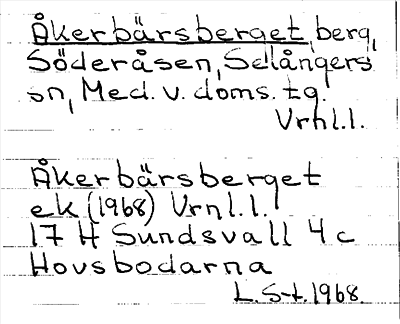 Åkerbärsberget, berg,
Söderåsen, Selångers
sn, Med. v. doms. tg.
Vrnl.l.
Åkerbärsberget
ek (1968) Vrnl.l.
17 H Sundsvall 4 c
Hovsbodarna
L. S-t. 1968.